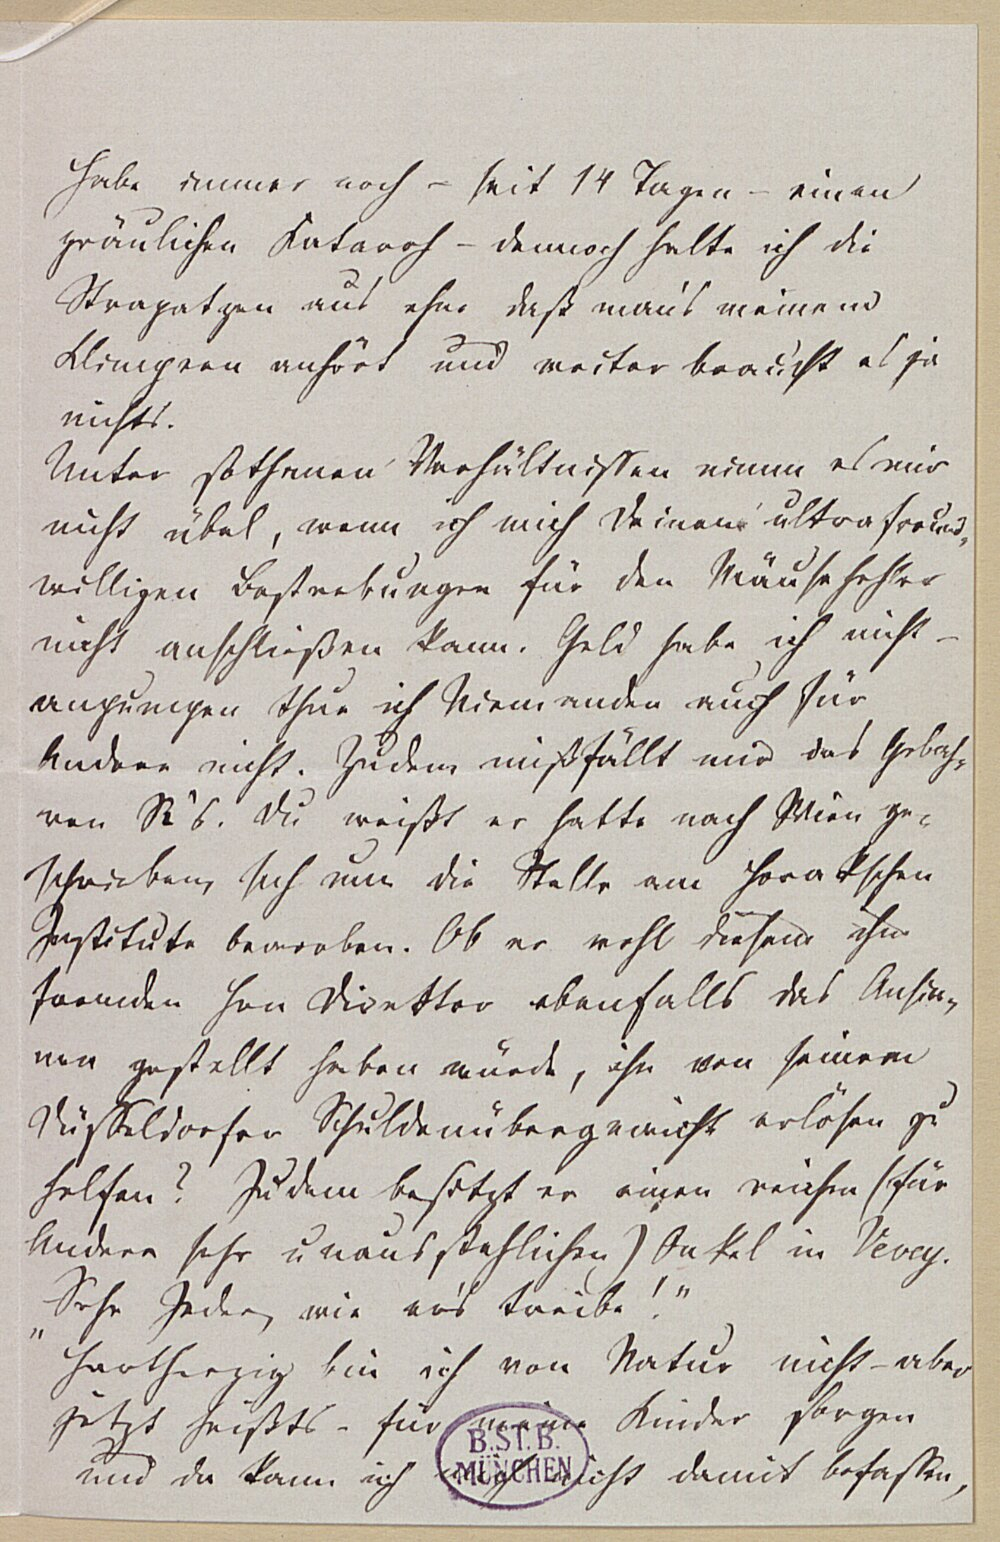 habe immer noch – seit 14 Tagen – einen
gräulichen Katarrh – dennoch halte ich die
Strapatzen aus ohne daß man's meinem
Klimpern anhört und weiter braucht es ja
nichts.
Unter sothanen Verhältnissen nimm es mir
nicht übel, wenn ich mich Deinen ultrafreund-
willigen Bestrebungen für den
nicht anschließen kann. Geld habe ich nicht –
anpumpen thue ich Niemanden auch für
Andere nicht. Zudem mißfällt mir das Gebah-
ren R's. Du weißt er hatte nach Wien ge-
schrieben, sich um die Stelle am Horakschen
Institute beworben. Ob er wohl diesem ihm
fremden Hrn Direktor ebenfalls das Ansin-
nen gestellt haben würde, ihn von seinem
Düsseldorfer Schuldenübergewicht erlösen zu
helfen? Zudem besitzt er einen reichen (für
Andere sehr unausstehlichen) Onkel in Vevey.
„Sehe Jeder, wie er's treibe!"
Hartherzig bin ich von Natur nicht – aber
jetzt heißts – für meine Kinder sorgen
und da kann ich mich nicht damit befassen,
B.ST.B.
MÜNCHEN